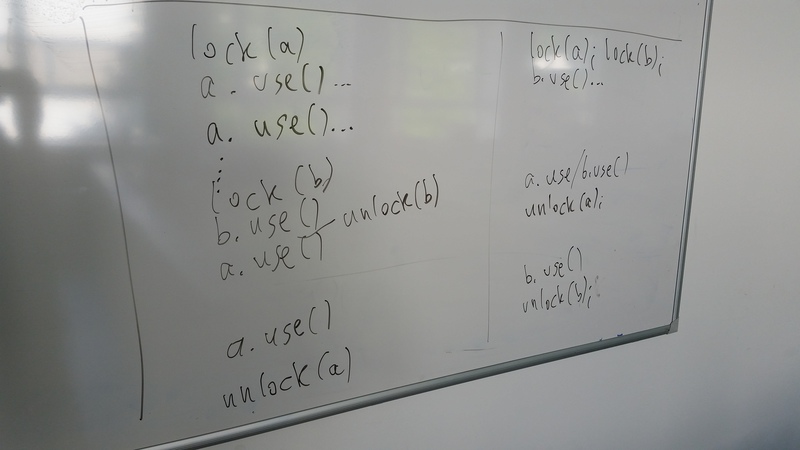 lock(a)
a. use()...
a. use()...
⋮
lock(b)
b. use()
unlock(b)
a. use()
a. use()
unlock(a)
lock(a); lock(b);
b. use()...
a. use/b.use()
unlock(a);
b. use()
unlock(b);